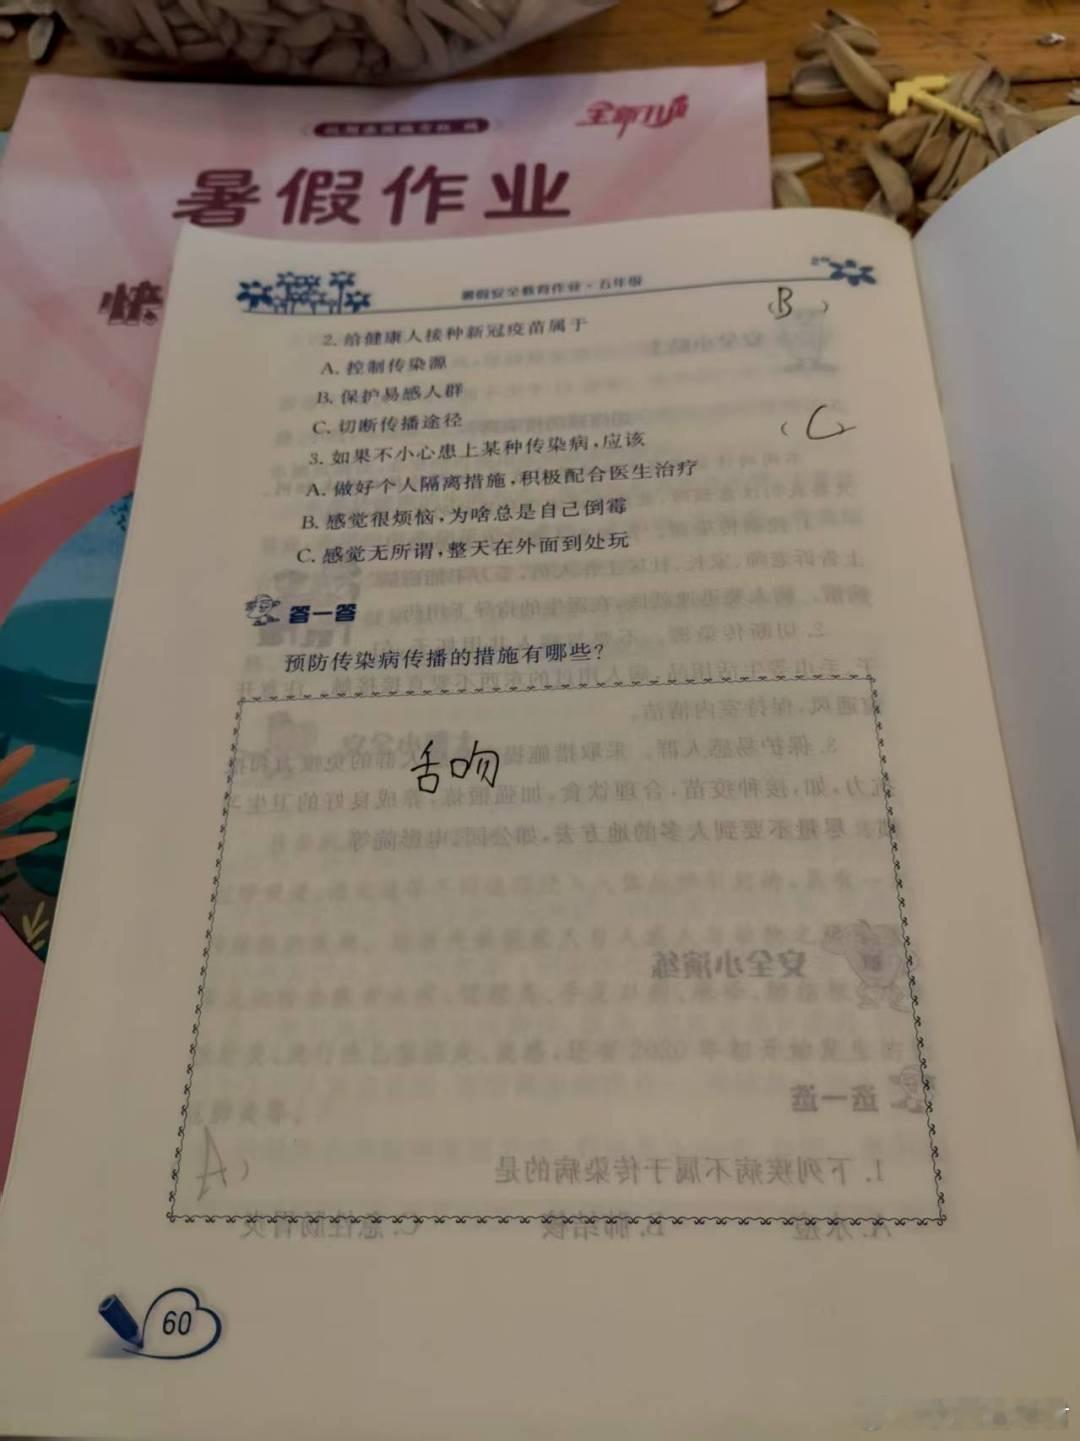 暑假作业
快
暑假安全教育作业·五年级
2. 给健康人接种新冠疫苗属于 (B)
A. 控制传染源
B. 保护易感人群
C. 切断传播途径
3. 如果不小心患上某种传染病,应该 (C)
A. 做好个人隔离措施,积极配合医生治疗
B. 感觉很烦恼,为啥总是自己倒霉
C. 感觉无所谓,整天在外面到处玩
答一答
预防传染病传播的措施有哪些?
舌吻
60